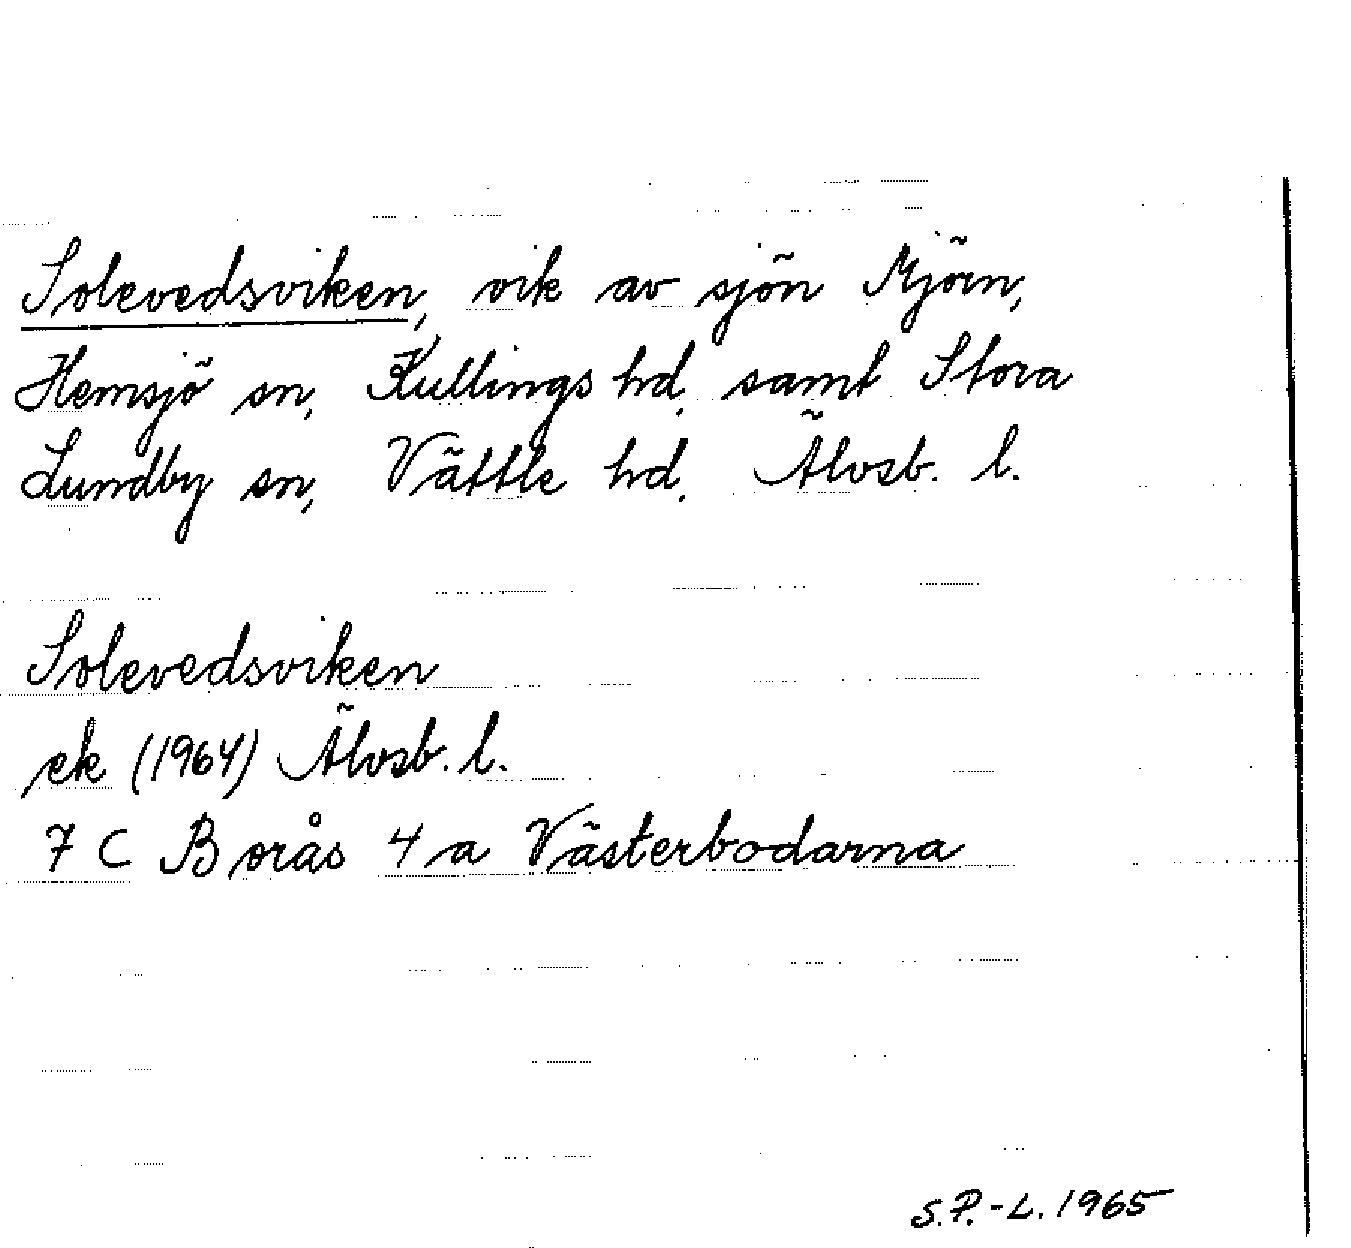 Solevedsviken, vik av sjön Mjörn,
Hemsjö sn, Kullings hd, samt Stora
Lundby sn, Vättle hd, Älvsb. l.
Solevedsviken
ek (1964) Älvsb. l.
7 C Borås 4 a Västerbodarna
S.P.-L. 1965